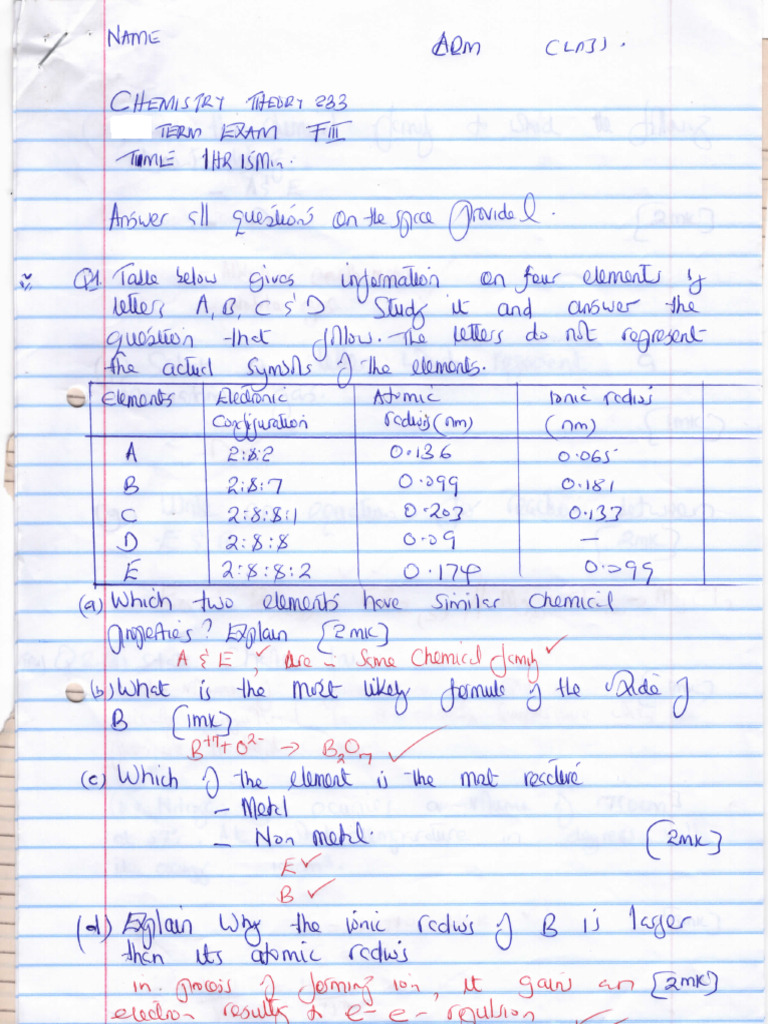 NAME ADM CLASS.
CHEMISTRY THEORY 233
TERM EXAM FIII
TIME 1HR 15Min.
Answer all questions on the space provided.
Q1. Table below gives information on four elements by
letters A, B, C & D Study it and answer the
question that follow. The letters do not represent
the actual symbols of the elements.
Elements Electronic Configuration Atomic radius (nm) Ionic radius (nm)
A 2:8:2 0.136 0.065
B 2:8:7 0.099 0.181
C 2:8:8:1 0.203 0.133
D 2:8:8 0.09 –
E 2:8:8:2 0.174 0.099
(a) Which two elements have similar chemical
properties? Explain [2mk]
A & E ✓, are in Same Chemical family ✓
(b) What is the most likely formula of the oxide of
B [1mk]
B+7 + O2- → B2O7 ✓
(c) Which of the element is the most reactive
– Metal
– Non metal. [2mk]
E ✓
B ✓
(d) Explain Why the ionic radius of B is larger
than its atomic radius
in process of forming ion, it gains an [2mk]
electron results to e- e- repulsion ✓✓